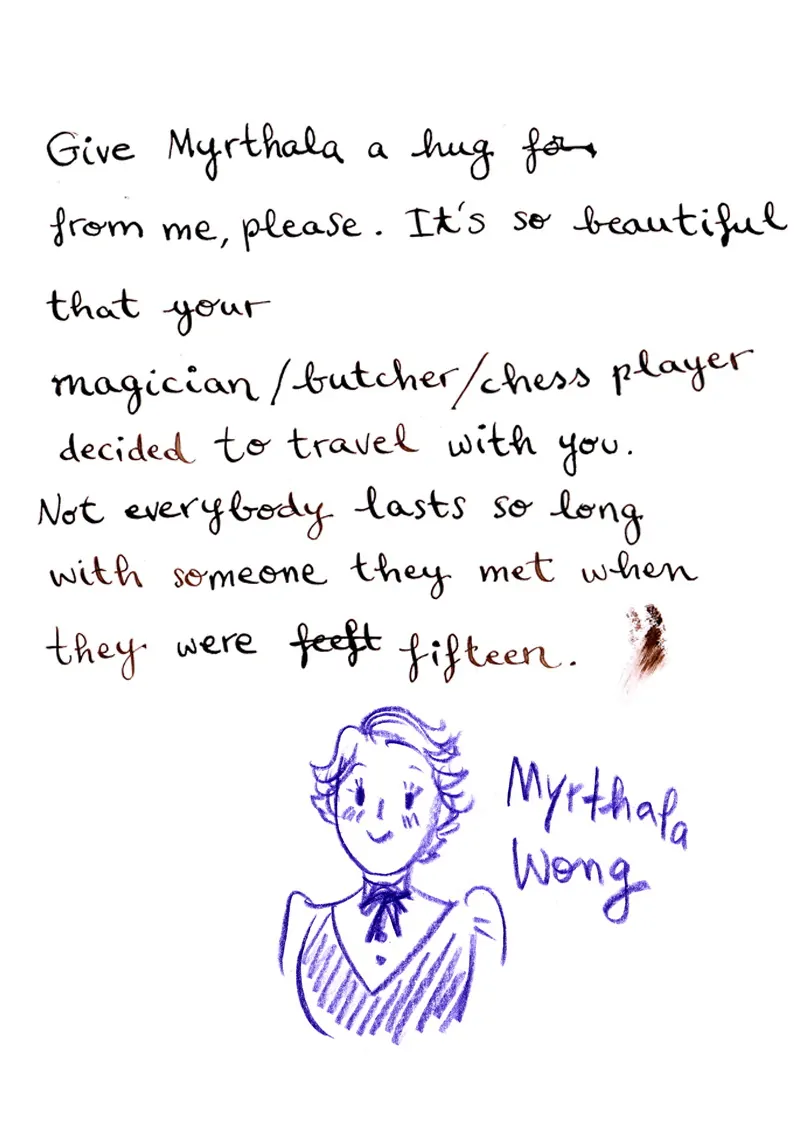 Give Myrthala a hug fo
from me, please. It's so beautiful
that your
magician/butcher/chess player
decided to travel with you.
Not everybody lasts so long
with someone they met when
they were feeft fifteen.
Myrthala
Wong